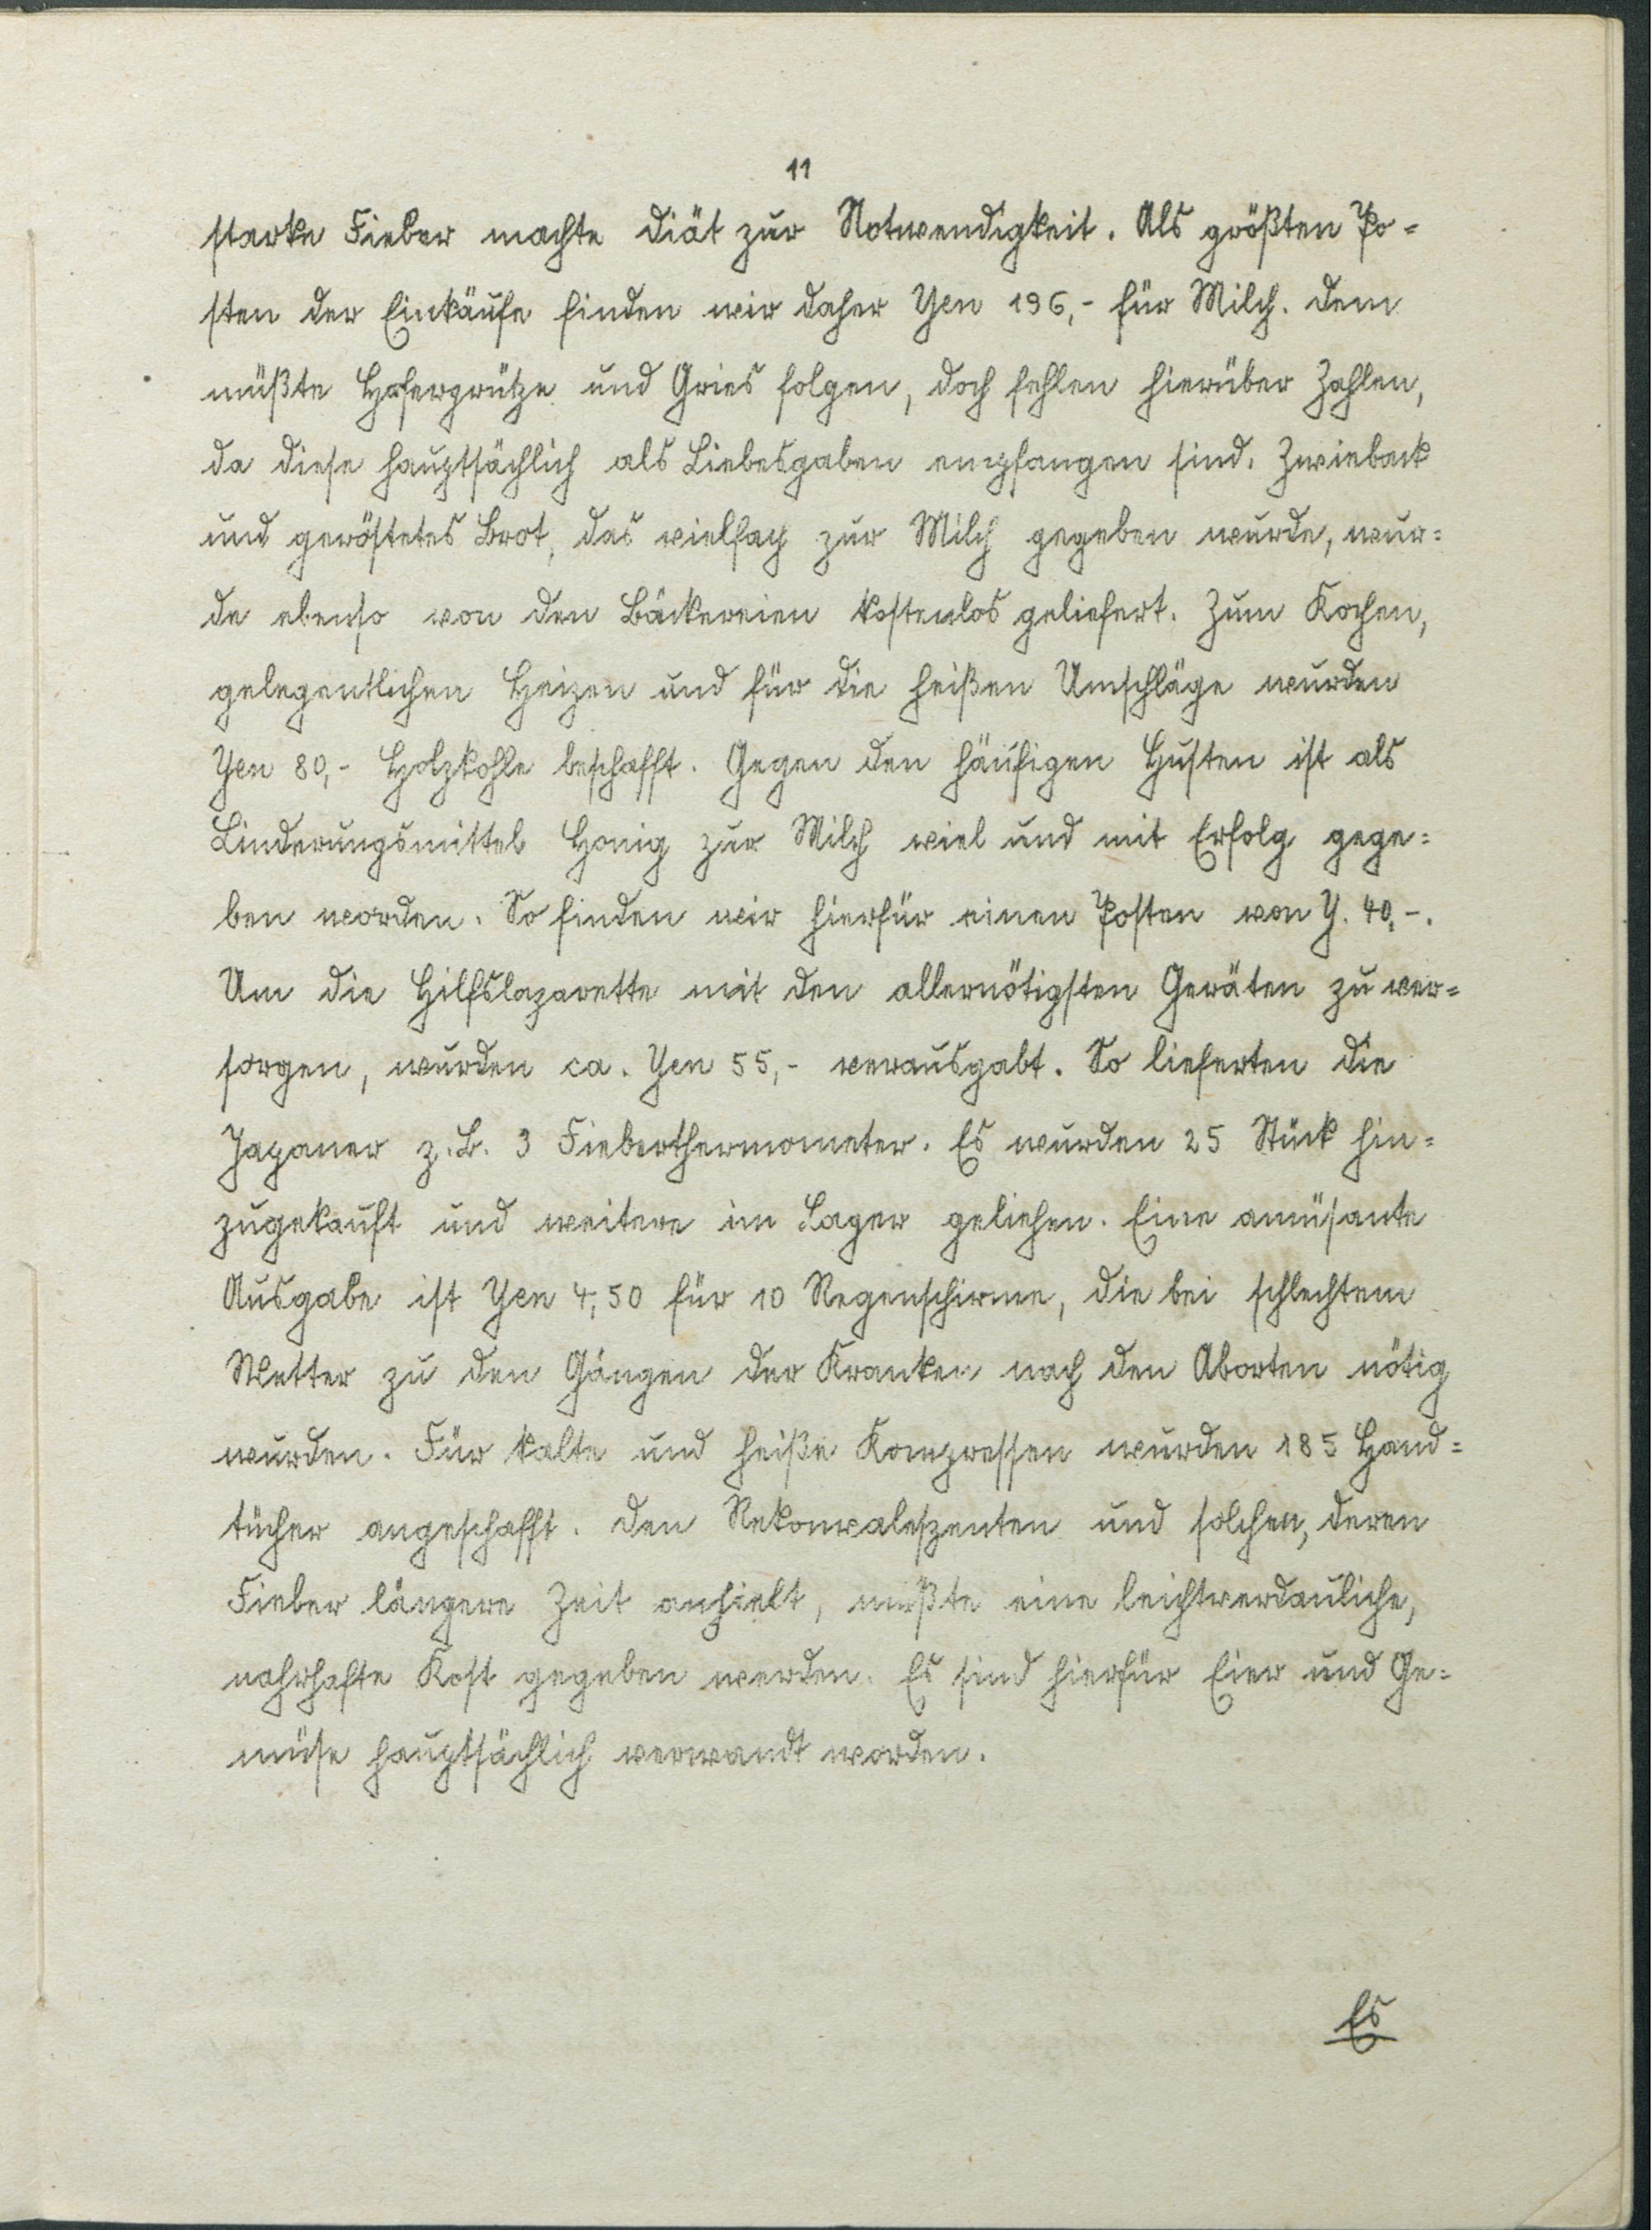 11
starke Fieber machte Diät zur Notwendigkeit. Als größten Po-
sten der Einkäufe finden wir daher Yen 196,- für Milch. Dem
müßte Hafergrütze und Gries folgen, doch fehlen hierüber Zahlen,
da diese hauptsächlich als Liebesgaben empfangen sind. Zwieback
und geröstetes Brot, das vielfach zur Milch gegeben wurde, wur=
de ebenso von den Bäckereien kostenlos geliefert. Zum Kochen,
gelegentlichen Heizen und für die heißen Umschläge wurden
Yen 80,- Holzkohle beschafft. Gegen den häufigen Husten ist als
Linderungsmittel Honig zur Milch viel und mit Erfolg gege=
ben worden. So finden wir hierfür einen Posten von Y. 40,-.
Um die Hilfslazarette mit den allernötigsten Geräten zu ver=
sorgen, wurden ca. Yen 55,- verausgabt. So lieferten die
Japaner z.B. 3 Fieberthermometer. Es wurden 25 Stück hin=
zugekauft und weitere im Lager geliehen. Eine amüsante
Ausgabe ist Yen 4,50 für 10 Regenschirme, die bei schlechtem
Wetter zu den Gängen der Kranken nach den Aborten nötig
wurden. Für kalte und heiße Kompressen wurden 185 Hand=
tücher angeschafft. Den Rekonvaleszenten und solchen, deren
Fieber längere Zeit anhielt, mußte eine leichtverdauliche,
nahrhafte Kost gegeben werden. Es sind hierfür Eier und Ge=
müse hauptsächlich verwandt worden.
Es